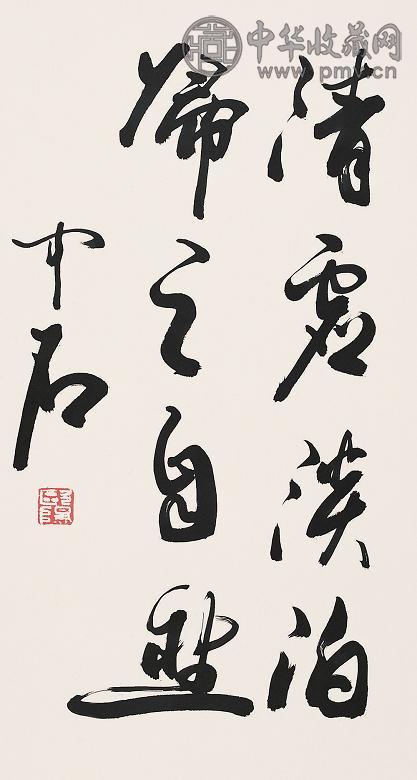 清虚淡泊
归之自然
中石
中华收藏网
www.pmv.cn